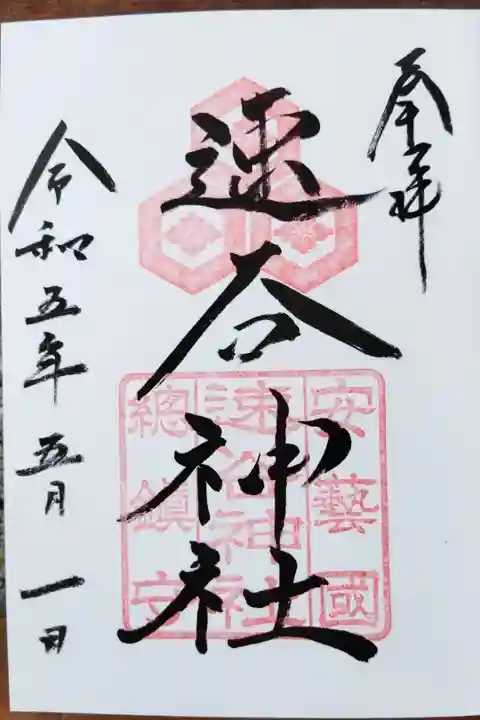 奉拝
速谷神社
安藝國
速谷神社
總鎮守
令和五年五月一日